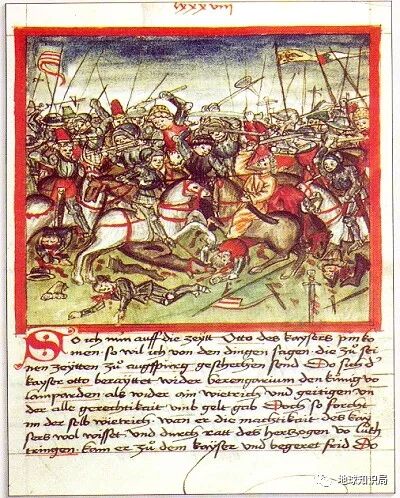 lxxxviij
So ich nun auff die zeytt Otto des kaysers pin ko
men so wil ich von den dingen sagen die zů sei
nen zeytten zů augspurg geschechen sind Do sich d'
kaÿser otto beraÿttet wider berengarium den küng vo
lamparden als wider ain wietrich und geitigen un
der alle gerechtikait umb gelt gab Doch so forcht
im der selb wietrich wan er die machtikait des kaÿ
sers wol wisst und durch ratt des hertzogen vo luth
tringen kam er zů dem kaÿser und begeret frid Do
地球知识局